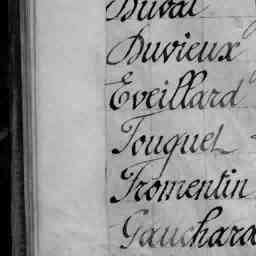 Duval
Duvieux
Eveillard
Fouquet
Fromentin
Gauchard